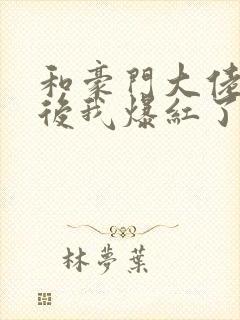 和豪門大佬
後我爆紅了
林夢葉